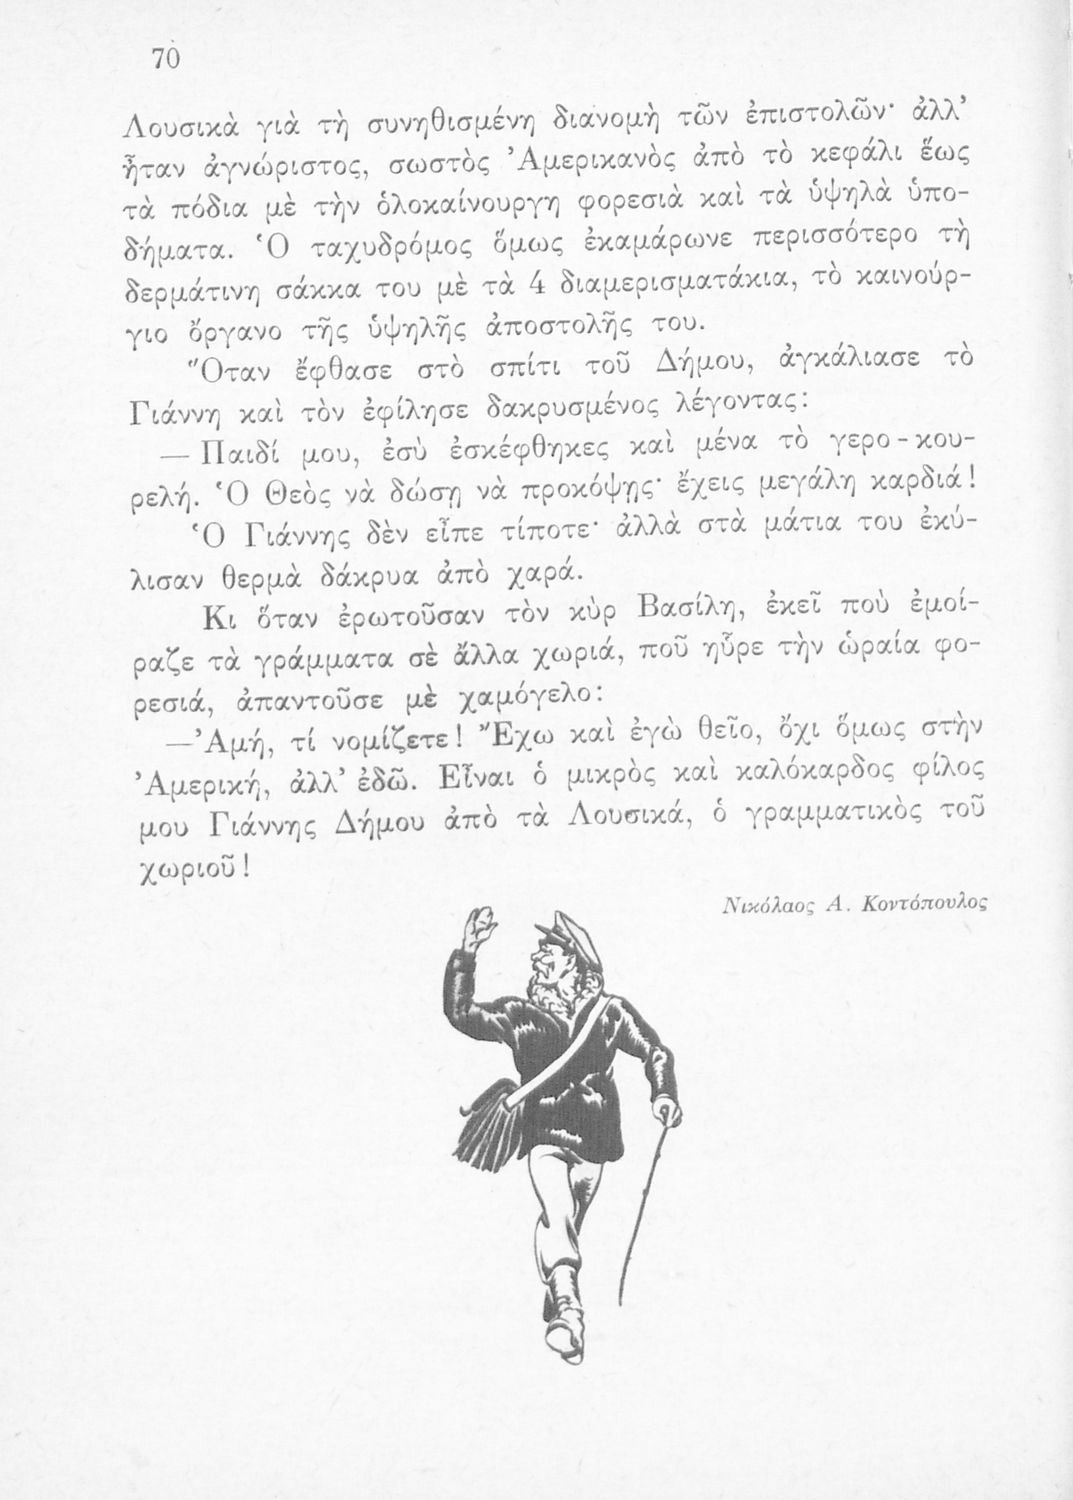 70
Λουσικὰ γιὰ τὴ συνηθισμένη διανομὴ τῶν ἐπιστολῶν· ἀλλ’
ἦταν ἀγνώριστος, σωστὸς Ἀμερικανὸς ἀπὸ τὸ κεφάλι ἕως
τὰ πόδια μὲ τὴν ὁλοκαίνουργη φορεσιὰ καὶ τὰ ὑψηλὰ ὑπο-
δήματα. Ὁ ταχυδρόμος ὅμως ἐκαμάρωνε περισσότερο τὴ
δερμάτινη σάκκα του μὲ τὰ 4 διαμερισματάκια, τὸ καινούρ-
γιο ὄργανο τῆς ὑψηλῆς ἀποστολῆς του.
Ὅταν ἔφθασε στὸ σπίτι τοῦ Δήμου, ἀγκάλιασε τὸ
Γιάννη καὶ τὸν ἐφίλησε δακρυσμένος λέγοντας:
— Παιδί μου, ἐσὺ ἐσκέφθηκες καὶ μένα τὸ γερο-κου-
ρελή. Ὁ Θεὸς νὰ δώσῃ νὰ προκόψῃς· ἔχεις μεγάλη καρδιά!
Ὁ Γιάννης δὲν εἶπε τίποτε· ἀλλὰ στὰ μάτια του ἐκύ-
λισαν θερμὰ δάκρυα ἀπὸ χαρά.
Κι ὅταν ἐρωτοῦσαν τὸν κὺρ Βασίλη, ἐκεῖ ποὺ ἐμοί-
ραζε τὰ γράμματα σὲ ἄλλα χωριά, ποῦ ηὗρε τὴν ὡραία φο-
ρεσιά, ἀπαντοῦσε μὲ χαμόγελο:
—Ἀμή, τί νομίζετε! Ἔχω καὶ ἐγὼ θεῖο, ὄχι ὅμως στὴν
Ἀμερική, ἀλλ’ ἐδῶ. Εἶναι ὁ μικρὸς καὶ καλόκαρδος φίλος
μου Γιάννης Δήμου ἀπὸ τὰ Λουσικά, ὁ γραμματικὸς τοῦ
χωριοῦ!
Νικόλαος Α. Κοντόπουλος